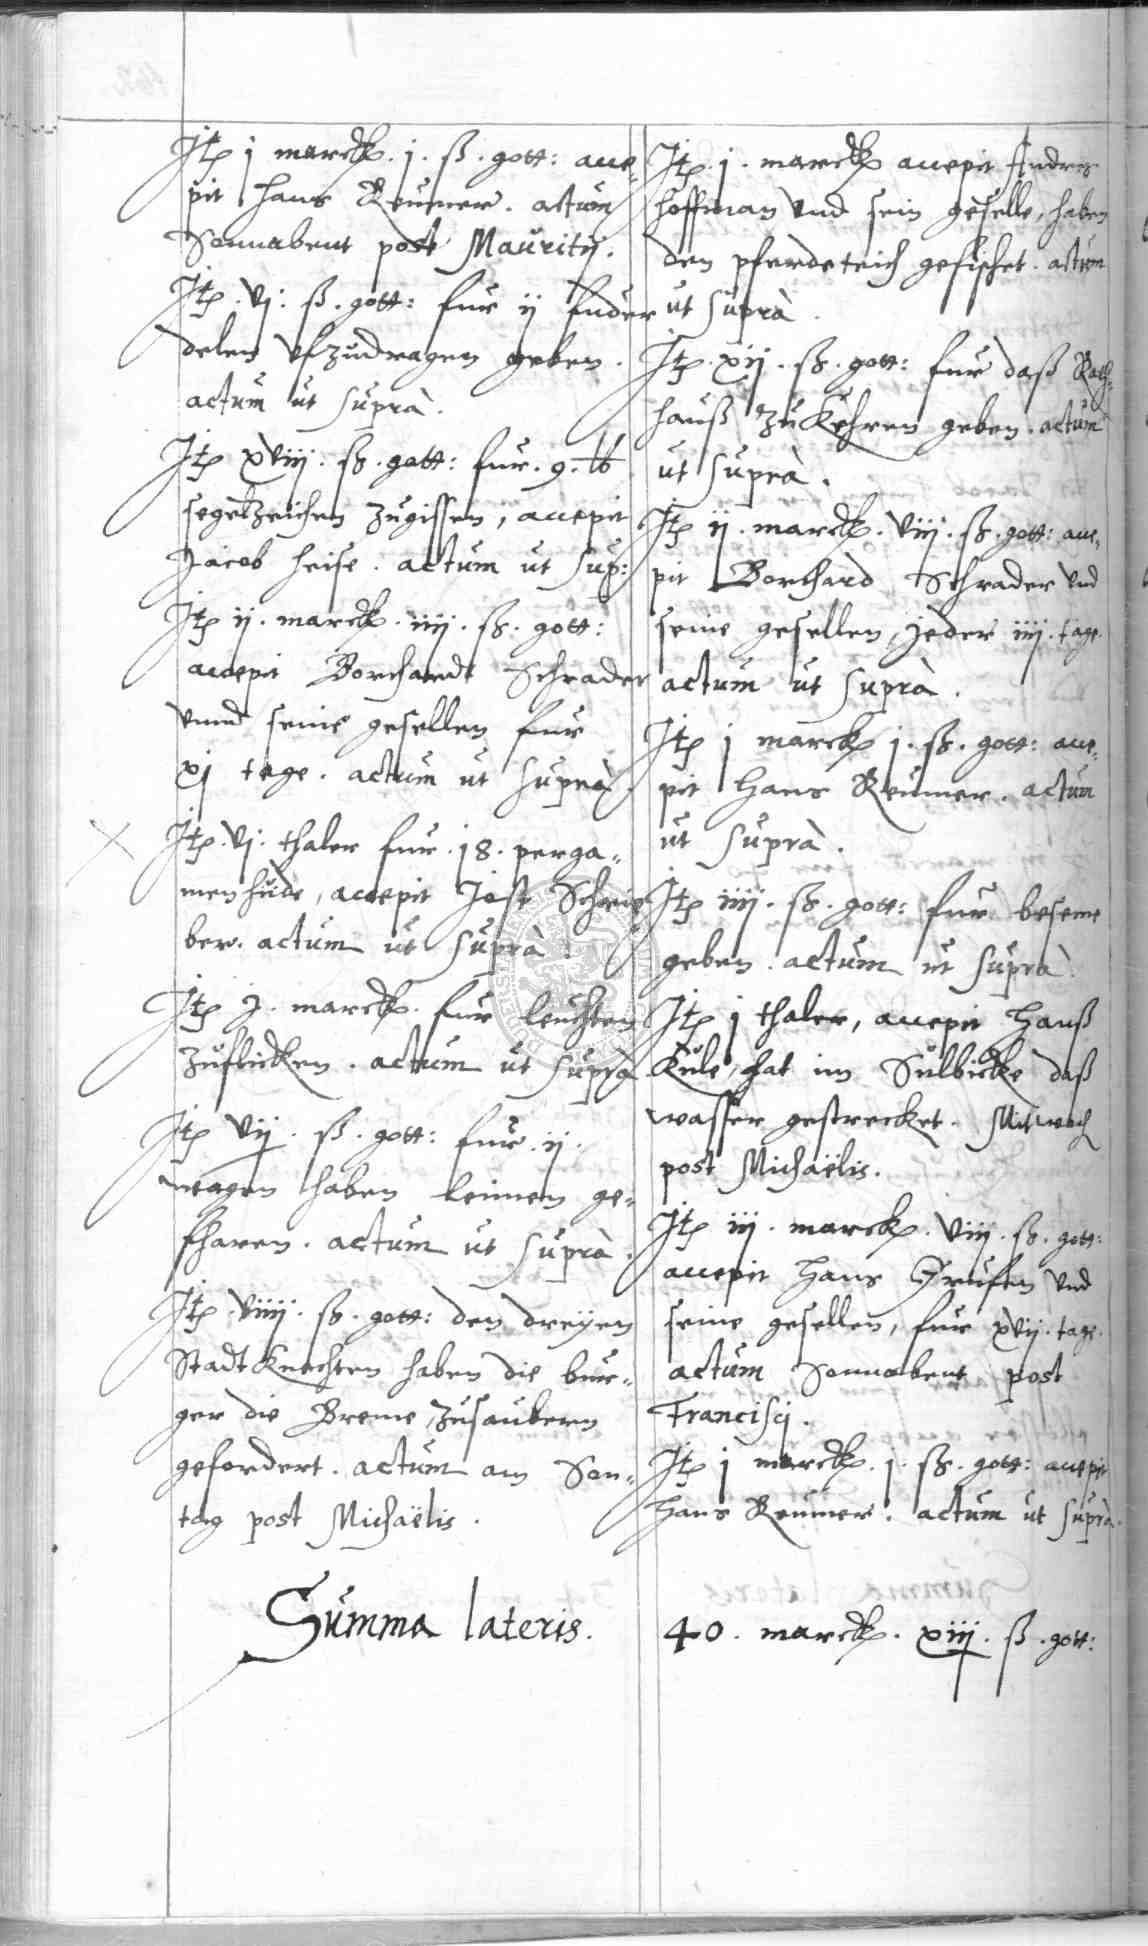 Jtem j marck. j. ß. gott: acce-
pit Hans Reumer. actum
Sonnabent post Mauritij.
Jtem. vj. ß. gott: fur ij fuder
delen vfzudragen geben.
actum ut suprà.
Jtem xviij. ß. gott: fur. 9. lb
segelzeichen zugissen, accepit
Jacob Heise. actum ut sup:
Jtem ij. marck. iiij. ß. gott:
accepit Borchardt Schrader
vnnd seine gesellen fur
xj tage. actum ut suprà
Jtem. vj. thaler fur. 18. perga-
menhude, accepit Jost Schrie-
ber. actum ut suprà.
Jtem j. marck. fur leuchten
zuflicken. actum ut suprà
Jtem vij. ß. gott: fur. ij.
wagen haben leimen ge-
fharen. actum ut suprà.
Jtem. viiij. ß. gott: den dreyen
Stadtknechten haben die bur-
ger die Breme zusaubern
gefordert. actum am Son-
tag post Michaëlis.
Jtem. j. marck accepit Andres
Hoffman vnd sein geselle, haben
den pferdeteich gefischet. actum
ut suprà.
Jtem. xij. ß. gott: fur daß Rath-
hauß zu Kehren geben. actum
ut suprà.
Jtem ij. marck. viij. ß. gott: acce-
pit Borchard Schrader vnd
seine gesellen, jeder iiij. tage.
actum ut suprà.
Jtem j marck j. ß. gott: acce-
pit Hans Reumer. actum
ut suprà.
Jtem iiij. ß. gott: fur beseme
geben. actum ut suprà
Jtem j thaler, accepit Hanß
Kule, hat im Sulbicke daß
wasser gestrecket. Mitwoch
post Michaëlis.
Jtem iij. marck. viij. ß. gott:
accepit Hans vnd
seine gesellen, fur xvij. tage.
actum Sonnabent post
Francisci.
Jtem j marck. j. ß. gott: accepit
Hans Reumer. actum ut suprà.
Summa lateris. 40. marck. xiij. ß. gott: